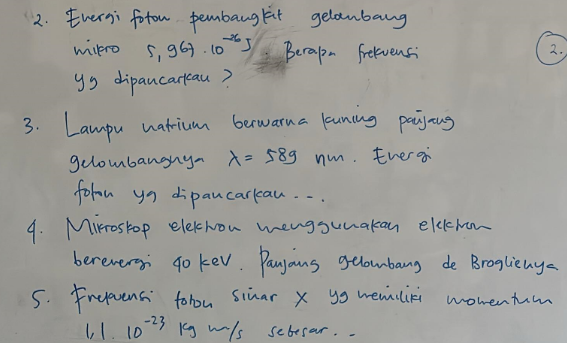 2. Energi foton pembangkit gelombang
mikro 5,967 . 10⁻²⁶ J. Berapa frekuensi
yg dipancarkan ?
2.
3. Lampu natrium berwarna kuning panjang
gelombangnya λ = 589 nm. Energi
foton yg dipancarkan ...
4. Mikroskop elektron menggunakan elektron
berenergi 40 keV. Panjang gelombang de Broglienya
5. Frekuensi foton sinar X yg memiliki momentum
1,1 . 10⁻²³ kg m/s sebesar ..